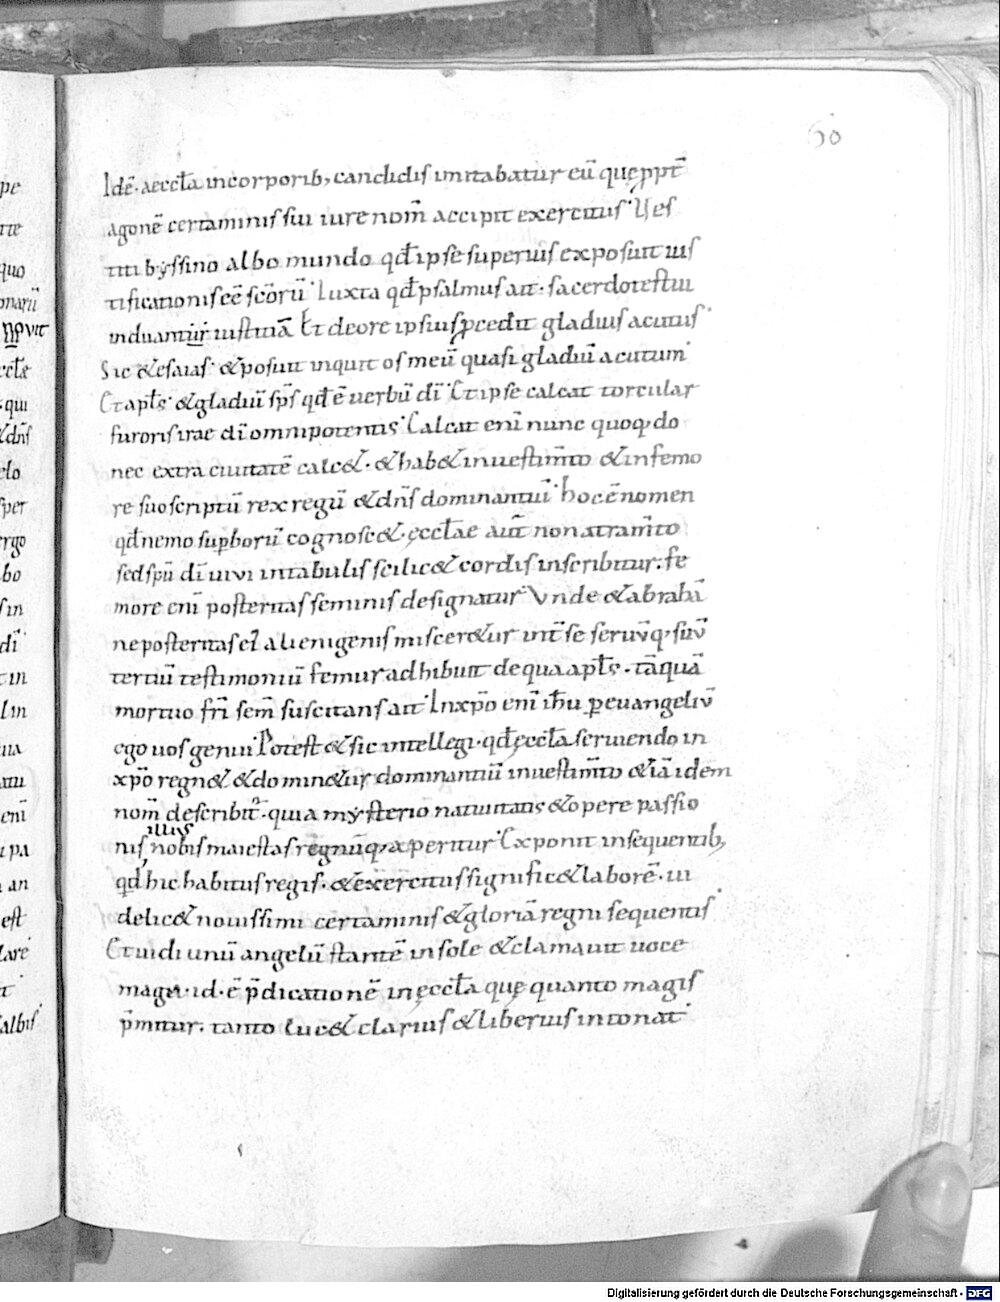 60
pe
quo
qui
&dnſ
ſper
ergo
bo
ſin
di
enī
an
eſt
albiſ
Idē· aeccła incorporib; candidiſ imitabatur eū quę ꝓpt̄
agonē certaminiſ ſui iure nom̄ accipit exercituſ· Veſ
titi byſſino albo mundo qđ ipſe ſuperiuſ expoſuit iuſ
tificationiſ eē ſcōrū· Iuxta qđ pſalmuſ ait· ſacerdoteſ tui
induantur iuſtitiā Et de ore ipſiuſ ꝓcedit gladiuſ acutuſ·
Sic & eſaiaſ· & poſuit inquit oſ meū quaſi gladiū acutum·
Et apłs· & gladiū ſp̄ſ qđ ē uerbū dī· Et ipſe calcat torcular
furoriſ irae dī omnipotentiſ· Calcat enī nunc quoq; do
nec extra ciuitatē calc&· & hab& in ueſtim̄to & in femo
re ſuo ſcriptū rex regū & dn̄ſ dominantiū· hoc ē nomen
qđ nemo ſuperborū cognoſc&· ęccłae aut̄ non atram̄to
ſed ſpū dī uiui in tabuliſ ſcilic& cordiſ inſcribitur· fe
more enī poſteritaſ ſeminiſ deſignatur· Vnde & abrahā
ne poſteritaſ eł alienigeniſ miſcer&ur int̄ ſe ſeruūq; ſuū
tertiū teſtimoniū femur adhibuit de qua apłs· tāquā
mortuo frī ſem̄ ſuſcitanſ ait· In xp̄o enī ih̄u ꝑ euangeliū
ego uoſ genui· Poteſt & ſic intellegi· qđ ęccła ſeruiendo in
xp̄o regn& & domin&ur dominantiū in ueſtim̄to & iā idem
nom̄ deſcribit̄· quia myſterio natiuitatiſ & opere paſſio
illiuſ
niſ nobiſ maieſtaſ regnūq; aperitur· Exponit in ſequentib;
qđ hic habituſ regiſ· & exercituſ ſignific& laborē· ui
delic& nouiſſimi certaminiſ & gloriā regni ſequentiſ·
Et uidi unū angelū ſtantē in ſole & clamauit uoce
magna· id· ē p̄dicationē in ęccła quę quanto magiſ
p̄mitur· tanto luc& clariuſ & liberiuſ intonat·
Digitalisierung gefördert durch die Deutsche Forschungsgemeinschaft - DFG